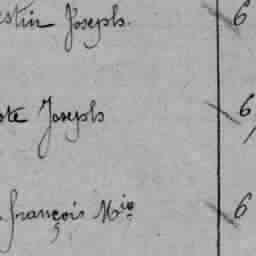 estin Joseph. 6
ote Joseph 6
françois M^ie 6